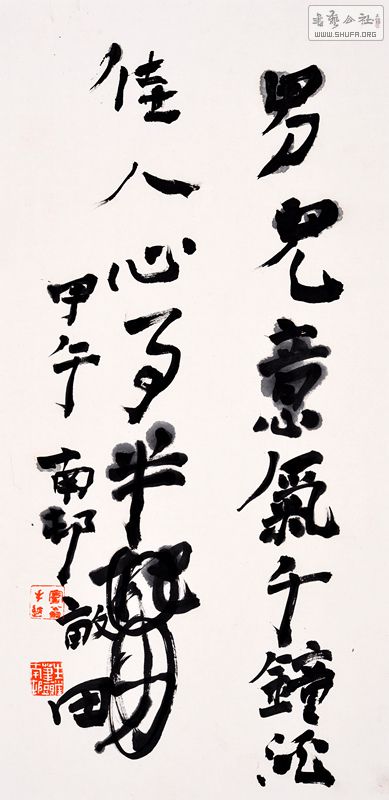 書藝公社
WWW.SHUFA.ORG
男兒意氣千鐘酒
佳人心事半
甲午南邨
畝田